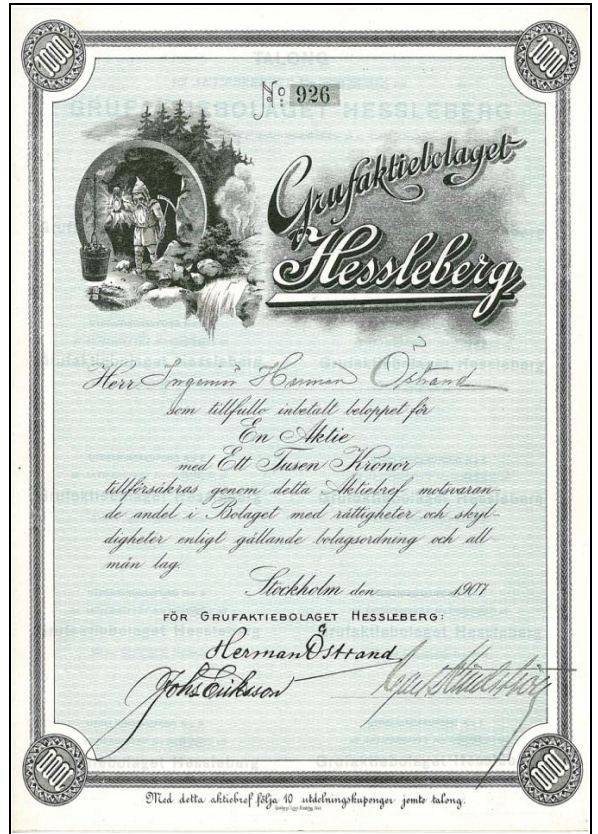 1000
1000
No: 926
Grufaktiebolaget
Hessleberg
Herr Ingeniör Herman Östrand
som tillfullo inbetalt beloppet för
En Aktie
med Ett Tusen Kronor
tillförsäkras genom detta Aktiebref motsvaran-
de andel i Bolaget med rättigheter och skyl-
digheter enligt gällande bolagsordning och all
män lag.
Stockholm den 1907
FÖR GRUFAKTIEBOLAGET HESSLEBERG:
Herman Östrand
Johs Eriksson
1000
1000
Med detta aktiebref följa 10 utdelningskuponger jemte talong.